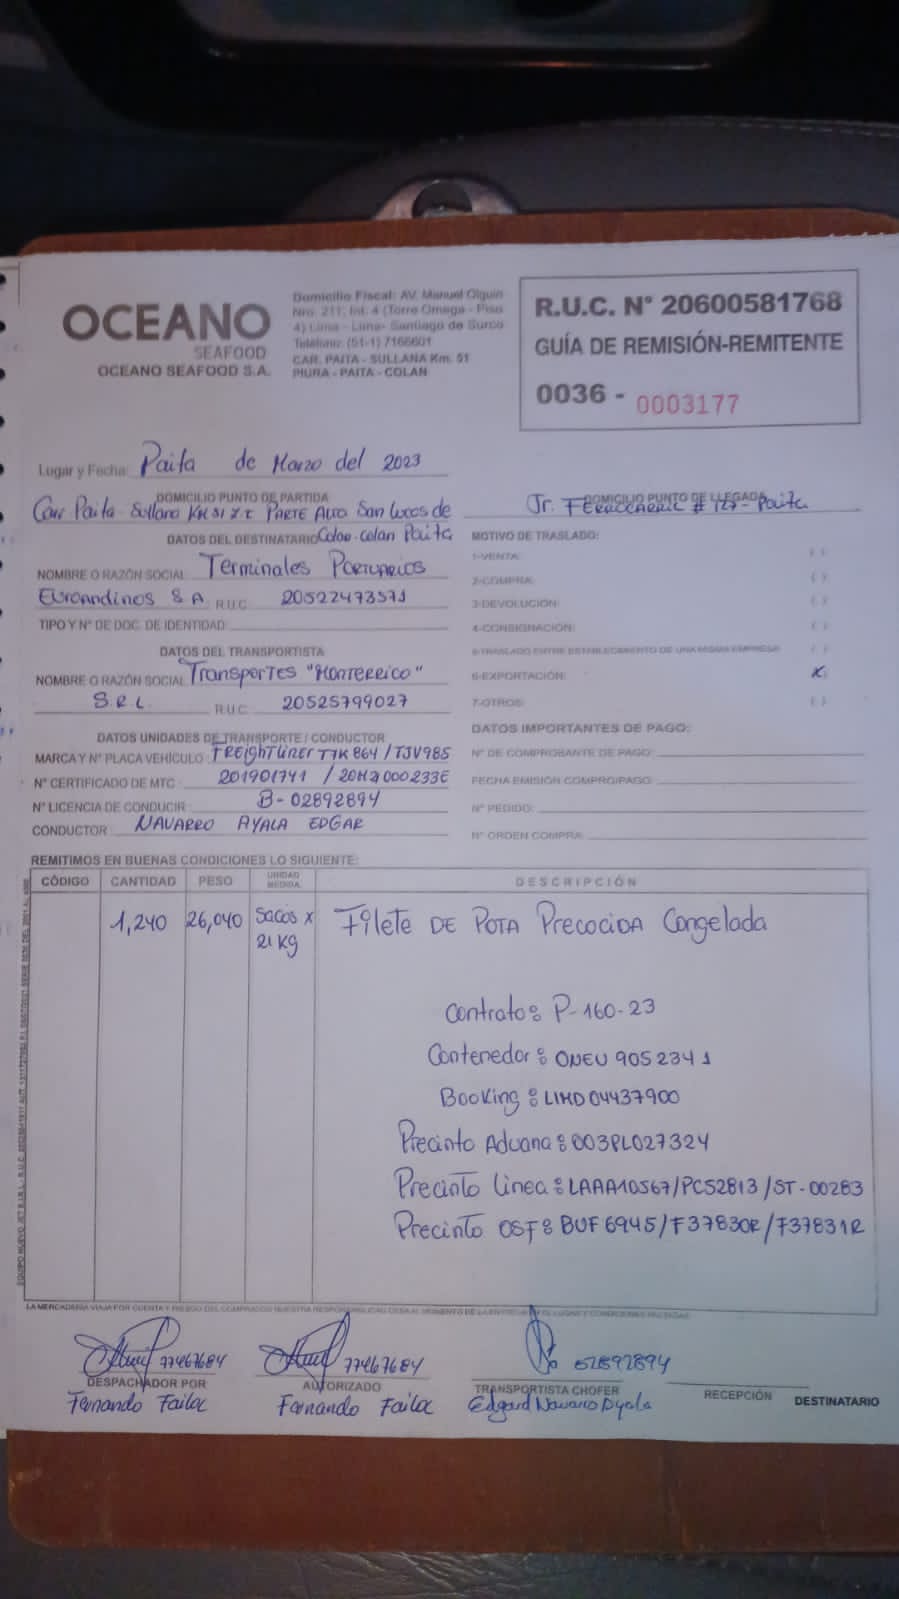 OCEANO
SEAFOOD
OCEANO SEAFOOD S.A.
Domicilio Fiscal: AV. Manuel Olguin
Nro. 211; Int. 4 (Torre Omega - Piso
4) Lima - Lima- Santiago de Surco
Teléfono: (51-1) 7166601
CAR. PAITA - SULLANA Km. 51
PIURA - PAITA - COLAN
R.U.C. N° 20600581768
GUÍA DE REMISIÓN-REMITENTE
0036 - 0003177
Lugar y Fecha: Paita de Marzo del 2023
DOMICILIO PUNTO DE PARTIDA
Carr Paita Sullana KM 51 Z.I. PARTE Alto San Lucas de
Colan-Colan Paita
DOMICILIO PUNTO DE LLEGADA
Jr. FERROCARRIL # 127- Paita
DATOS DEL DESTINATARIO
NOMBRE O RAZÓN SOCIAL: Terminales PORTUARIOS
Euroandinos S A. R.U.C. 20522473571
TIPO Y N° DE DOC. DE IDENTIDAD:
DATOS DEL TRANSPORTISTA
NOMBRE O RAZÓN SOCIAL: TransporTes "MONTERRICO"
S.R.L. R.U.C. 20525799027
DATOS UNIDADES DE TRANSPORTE / CONDUCTOR
MARCA Y N° PLACA VEHÍCULO: FREIGHTLINER T7K 864 / TJV985
N° CERTIFICADO DE MTC: 201901741 / 20M2000233E
N° LICENCIA DE CONDUCIR: B-02892894
CONDUCTOR: NAVARRO AYALA EDGAR
MOTIVO DE TRASLADO:
1-VENTA: ( )
2-COMPRA: ( )
3-DEVOLUCIÓN: ( )
4-CONSIGNACIÓN: ( )
5-TRASLADO ENTRE ESTABLECIMIENTO DE UNA MISMA EMPRESA ( )
6-EXPORTACIÓN: X
7-OTROS: ( )
DATOS IMPORTANTES DE PAGO:
N° DE COMPROBANTE DE PAGO:
FECHA EMISIÓN COMPRO/PAGO:
N° PEDIDO:
N° ORDEN COMPRA:
REMITIMOS EN BUENAS CONDICIONES LO SIGUIENTE:
CÓDIGO CANTIDAD PESO UNIDAD MEDIDA DESCRIPCIÓN
1,240 26,040 Sacos x 21 Kg Filete DE POTA PRECOCIDA Congelada
Contrato: P-160-23
Contenedor: ONEU 905 234 1
Booking: LIMD04437900
Precinto Aduana: 003PL027324
Precinto Linea: LAAA10567/PC52813/ST-00283
Precinto OSF: BUF 6945/F37830R/F37831R
DESPACHADOR POR
77467684
Fernando Failoc
AUTORIZADO
77467684
Fernando Failoc
TRANSPORTISTA CHOFER
02892894
Edgard Navarro Ayala
RECEPCIÓN
DESTINATARIO